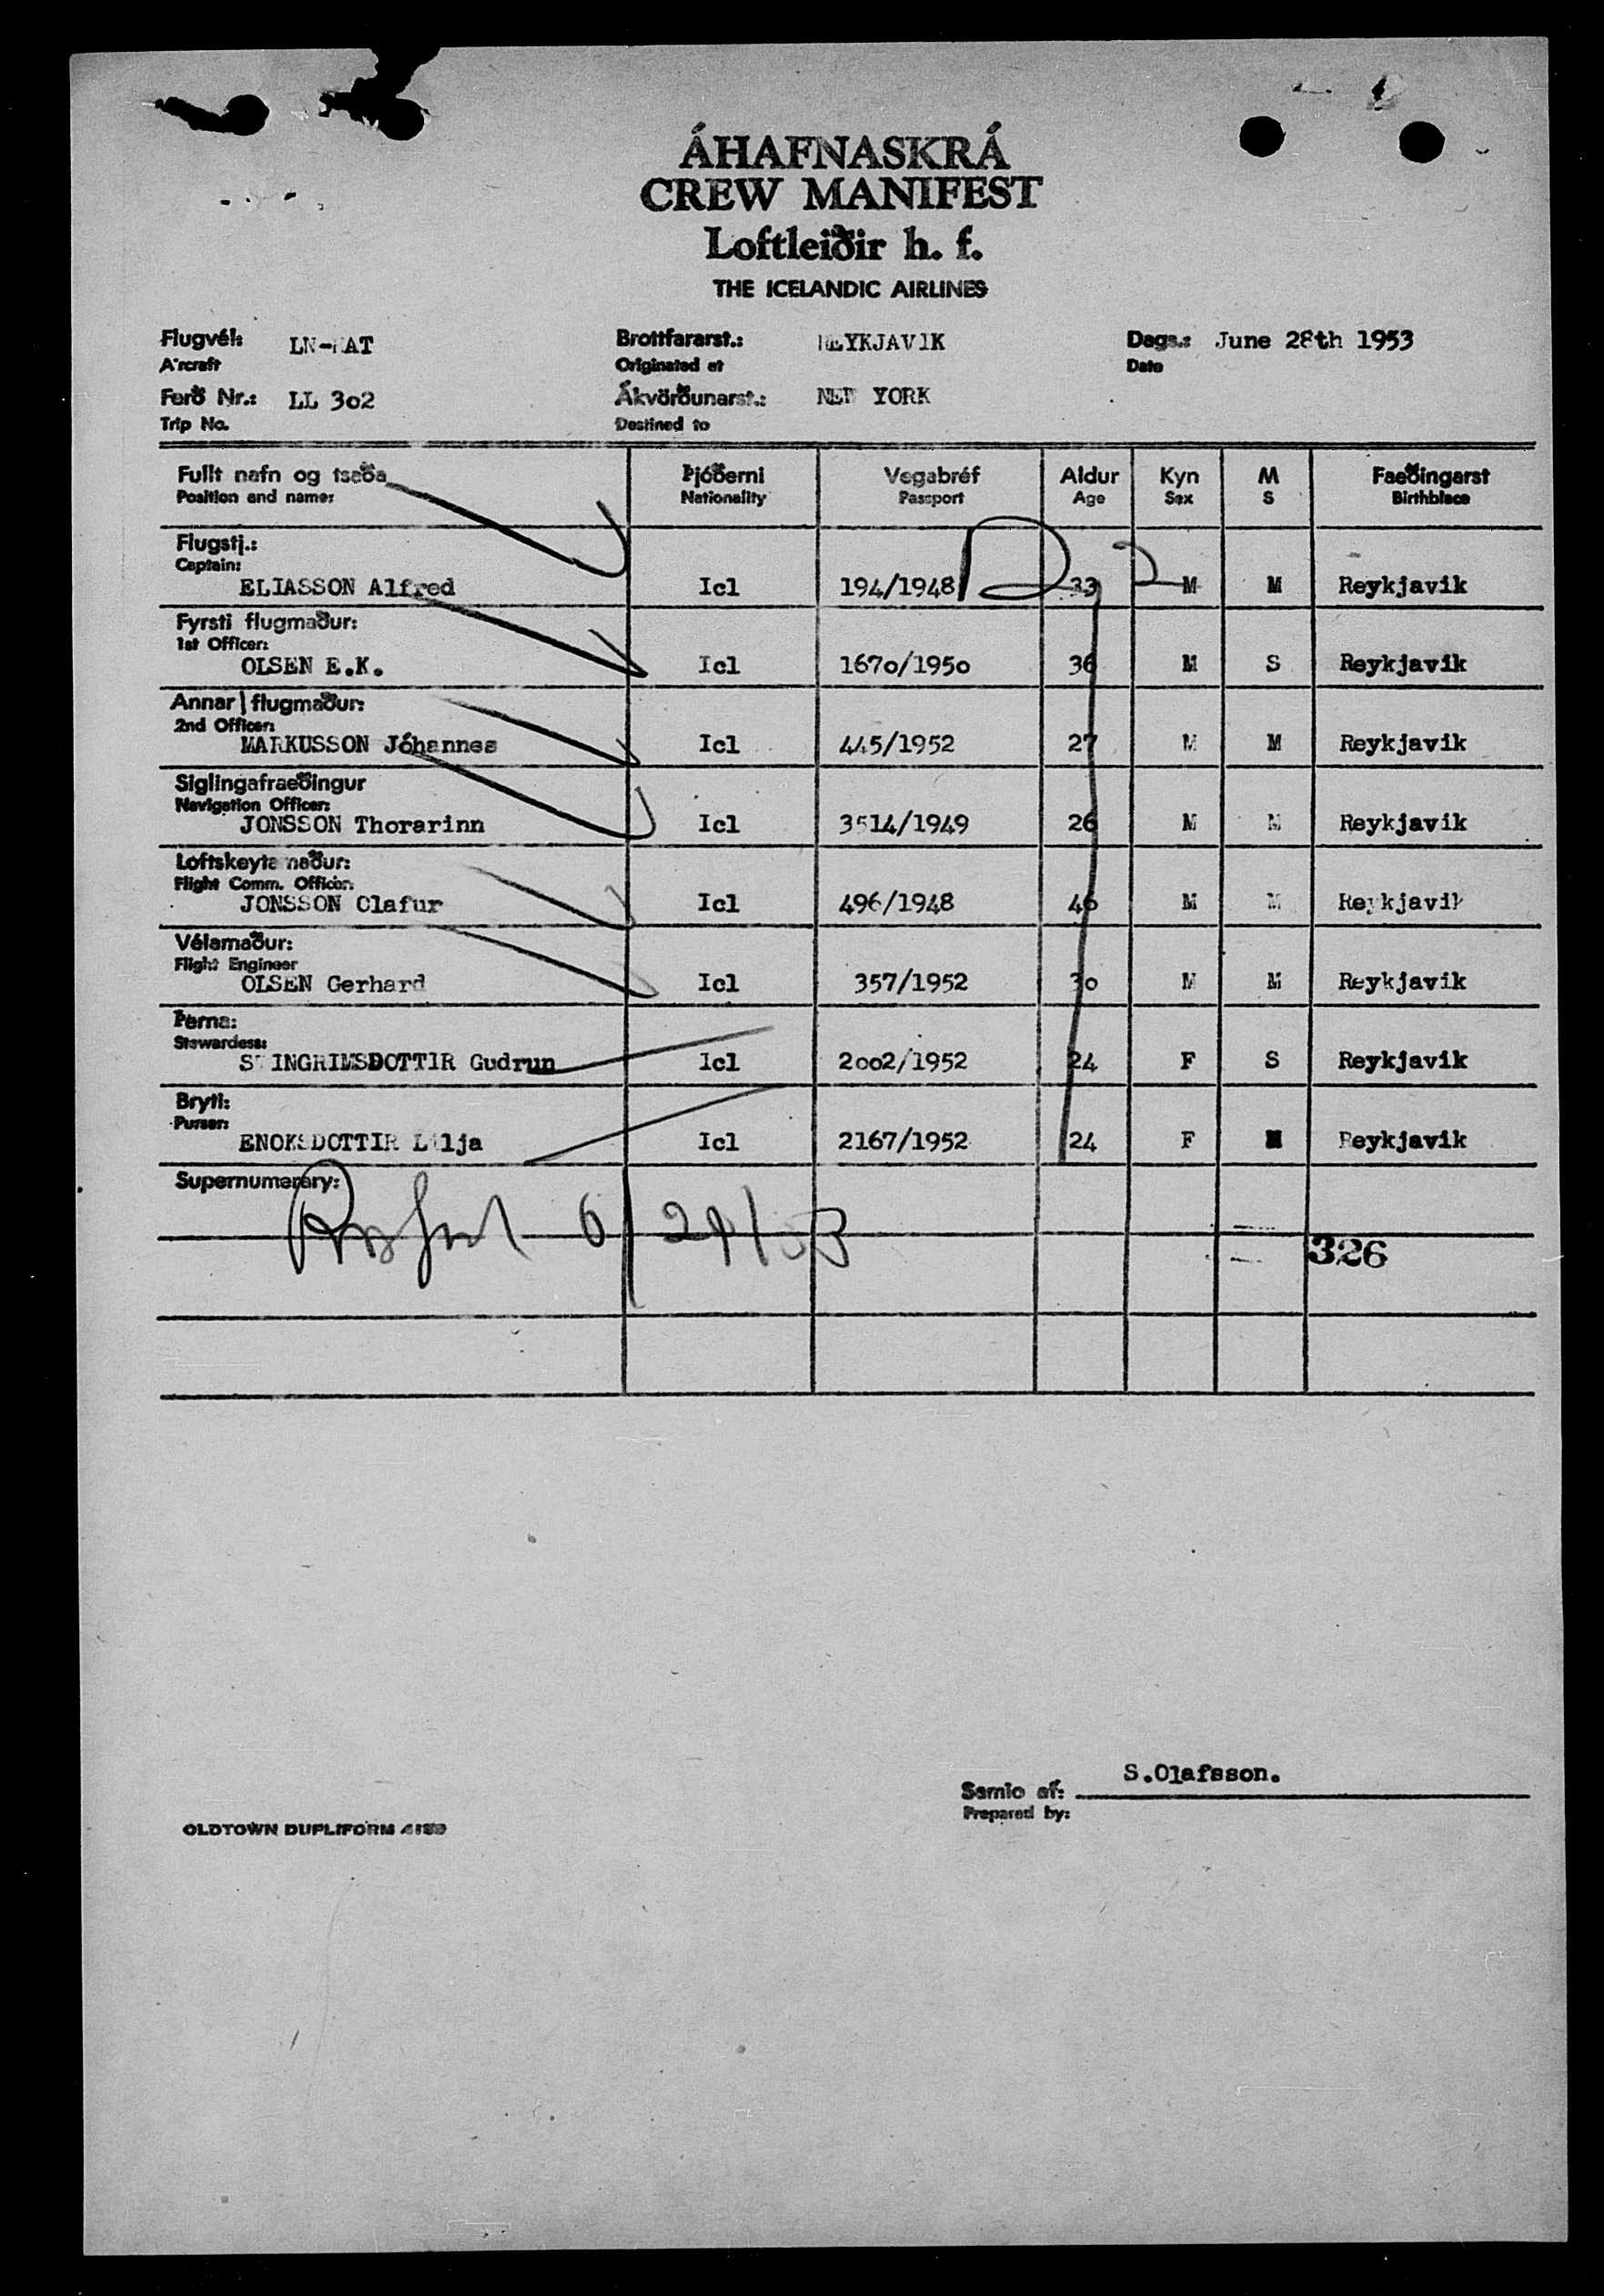 ÁHAFNASKRÁ
CREW MANIFEST
Loftleiðir h. f.
THE ICELANDIC AIRLINES
Flugvél: Brottfararst.: Dags.: June 28th 1953
Aircraft Originated at REYKJAVIK Date
Ferð Nr.: LL 3o2 Ákvörðunarst.: NEW YORK
Trip No. Destined to
Fullt nafn og staða Þjóðerni Vegabréf Aldur Kyn M Faeðingarst
Position and name: Nationality Passport Age Sex S Birthblace
Flugstj.:
Captain:
ELIASSON Alfred Icl 194/1948 33 M M Reykjavik
Fyrsti flugmaður:
1st Officer:
OLSEN E.K. Icl 167o/195o 36 M S Reykjavik
Annar flugmaður:
2nd Officer:
MARKUSSON Jóhannes Icl 445/1952 27 M M Reykjavik
Siglingafraeðingur
Navigation Officer:
JONSSON Thorarinn Icl 3514/1949 26 M M Reykjavik
Loftskeytamaður:
Flight Comm. Officer:
JONSSON Olafur Icl 496/1948 46 M M Reykjavik
Vélamaður:
Flight Engineer
OLSEN Gerhard Icl 357/1952 3o M M Reykjavik
Þerna:
Stewardess:
Gudrun Icl 2oo2/1952 24 F S Reykjavik
Bryti:
Purser:
ENOKSDOTTIR Lilja Icl 2167/1952 24 F M Reykjavik
Supernumerary:
6/29/53
326
S.Olafsson.
Samið af:
Prepared by:
OLDTOWN DUPLIFORM